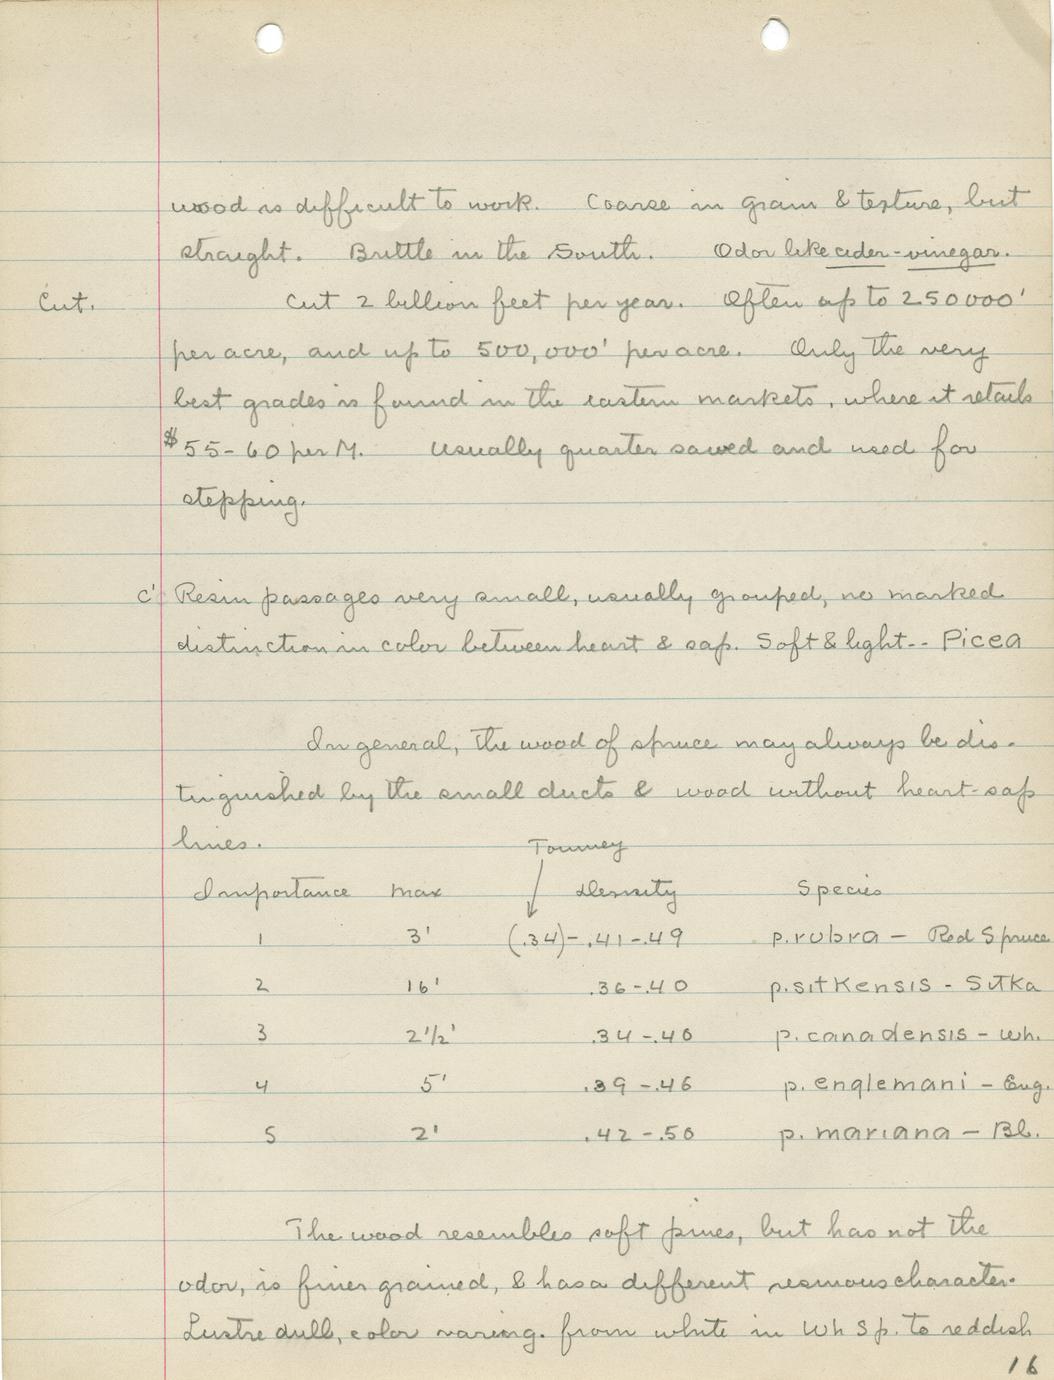 wood is difficult to work. Coarse in grain & texture, but
straight. Brittle in the South. Odor like cider-vinegar.
Cut. Cut 2 billion feet per year. Often up to 250000'
per acre, and up to 500,000' per acre. Only the very
best grades is found in the eastern markets, where it retails
$55-60 per M. Usually quarter sawed and used for
stepping.
c' Resin passages very small, usually grouped, no marked
distinction in color between heart & sap. Soft & light-- Picea
In general, the wood of spruce may always be dis-
tinguished by the small ducts & wood without heart-sap
lines.
Toumey
Importance max Density Species
1 3' (.34)-.41-.49 p.rubra - Red Spruce
2 16' .36-.40 p.sitkensis - Sitka
3 2 1/2' .34-.40 p. canadensis - wh.
4 5' .39-.46 p. englemani - Eng.
5 2' .42-.50 p. mariana - Bl.
The wood resembles soft pines, but has not the
odor, is finer grained, & has a different resinous character.
Lustre dull, color varing. from white in Wh Sp. to reddish
16